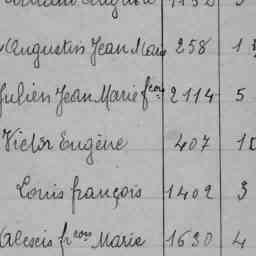 Augustin Jean Marie 258 1
Julien Jean Marie fcois 2114 5
Victor Eugène 407 1
Louis françois 1402 3
Alexis frcois Marie 1630 4